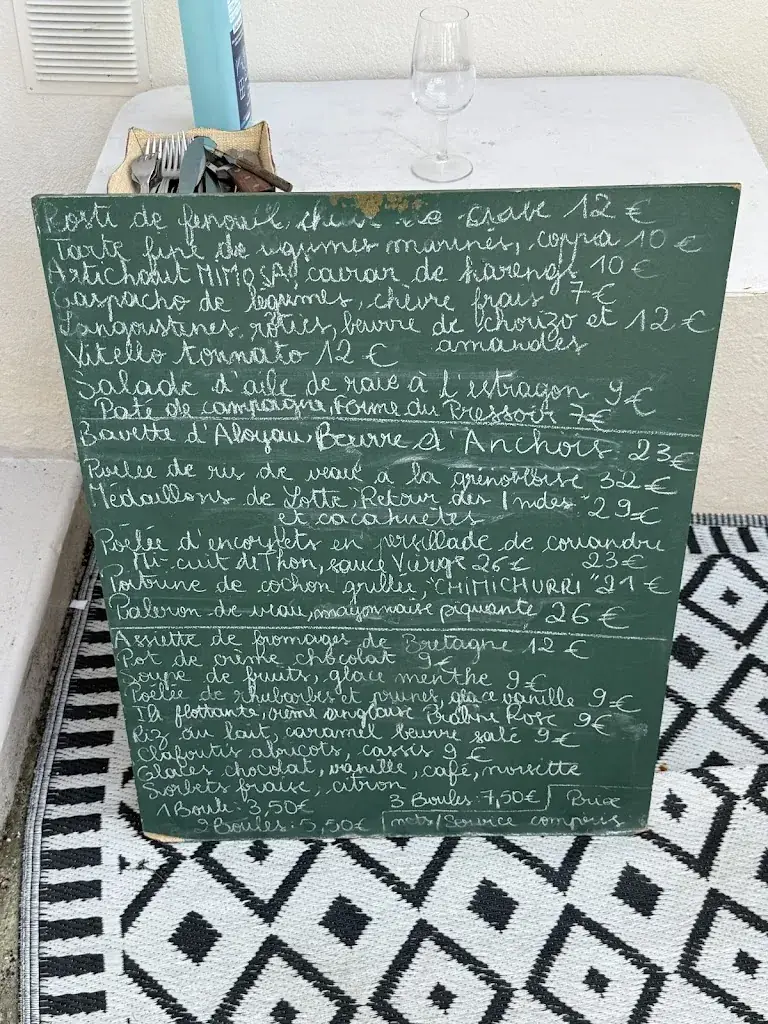 Rosti de fenouil, de crabe 12 €
Tarte fine de légumes marinés, coppa 10 €
Artichaut MIMOSA, caviar de hareng 10 €
Gaspacho de légumes, chèvre frais 7€
Langoustines rôties, beurre de chorizo et 12 €
amandes
Vitello tonnato 12 €
Salade d'aile de raie à l'estragon 9€
Paté de campagne, Ferme du Pressoir 7€
Bavette d'Aloyau, Beurre d'Anchois 23€
Poêlée de ris de veau à la grenobloise 32€
Médaillons de Lotte, Retour des Indes" 29€
et cacahuètes
Poêlée d'encornets en persillade de coriandre
23€
Mi-cuit de Thon, sauce Vierge 26€
Poitrine de cochon grillée, "CHIMICHURRI" 21€
Paleron de veau, mayonnaise piquante 26€
Assiette de fromages de Bretagne 12 €
Pot de crème chocolat 9€
Soupe de fruits, glace menthe 9€
Poêlée de rhubarbes et prunes, glace vanille 9€
Ile flottante, crème anglaise Praline Rose 9€
Riz au lait, caramel beurre salé 9€
Clafoutis abricots, cassis 9€
Glaces chocolat, vanille, café, noisette
Sorbets fraise, citron
1 Boule: 3,50€ 3 Boules: 7,50€ Prix
2 Boules: 5,50€ nets/Service compris